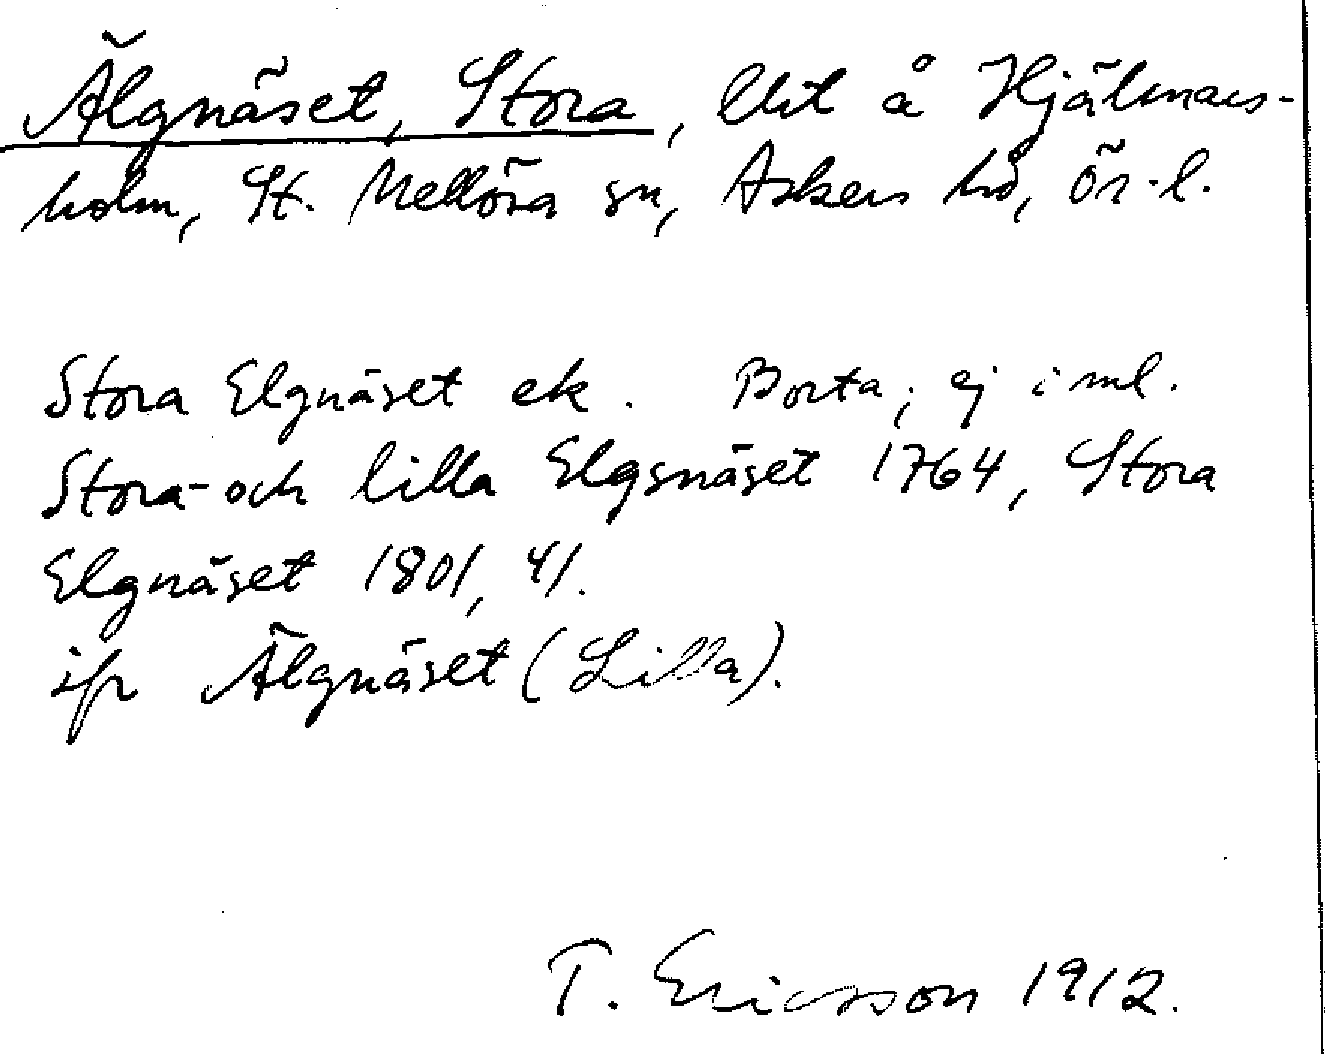 Älgnäset, Stora, lht å Hjälmars-
holm, St. Mellösa sn, Askers hd, Ör. l.
Stora Elgnäset ek. Borta; ej i ml.
Stora- och lilla Elgsnäset 1764, Stora
Elgnäset 1801, 41.
jfr Älgnäset (Lilla).
T. Ericsson 1912.